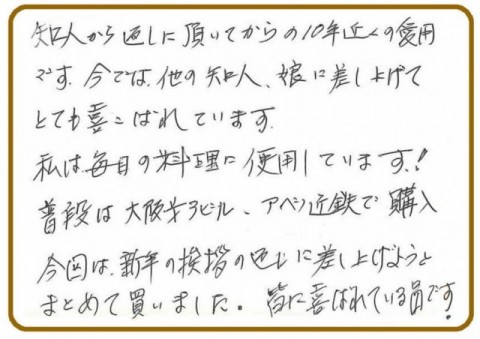 知人から返しに頂いてからの10年近くの愛用
です。今では、他の知人、娘に差し上げて
とても喜こばれています。
私は毎日の料理に使用しています!
普段は大阪第3ビル、アベノ近鉄で購入
今回は、新年の挨拶の返しに差し上げようと
まとめて買いました。皆に喜ばれている品です!